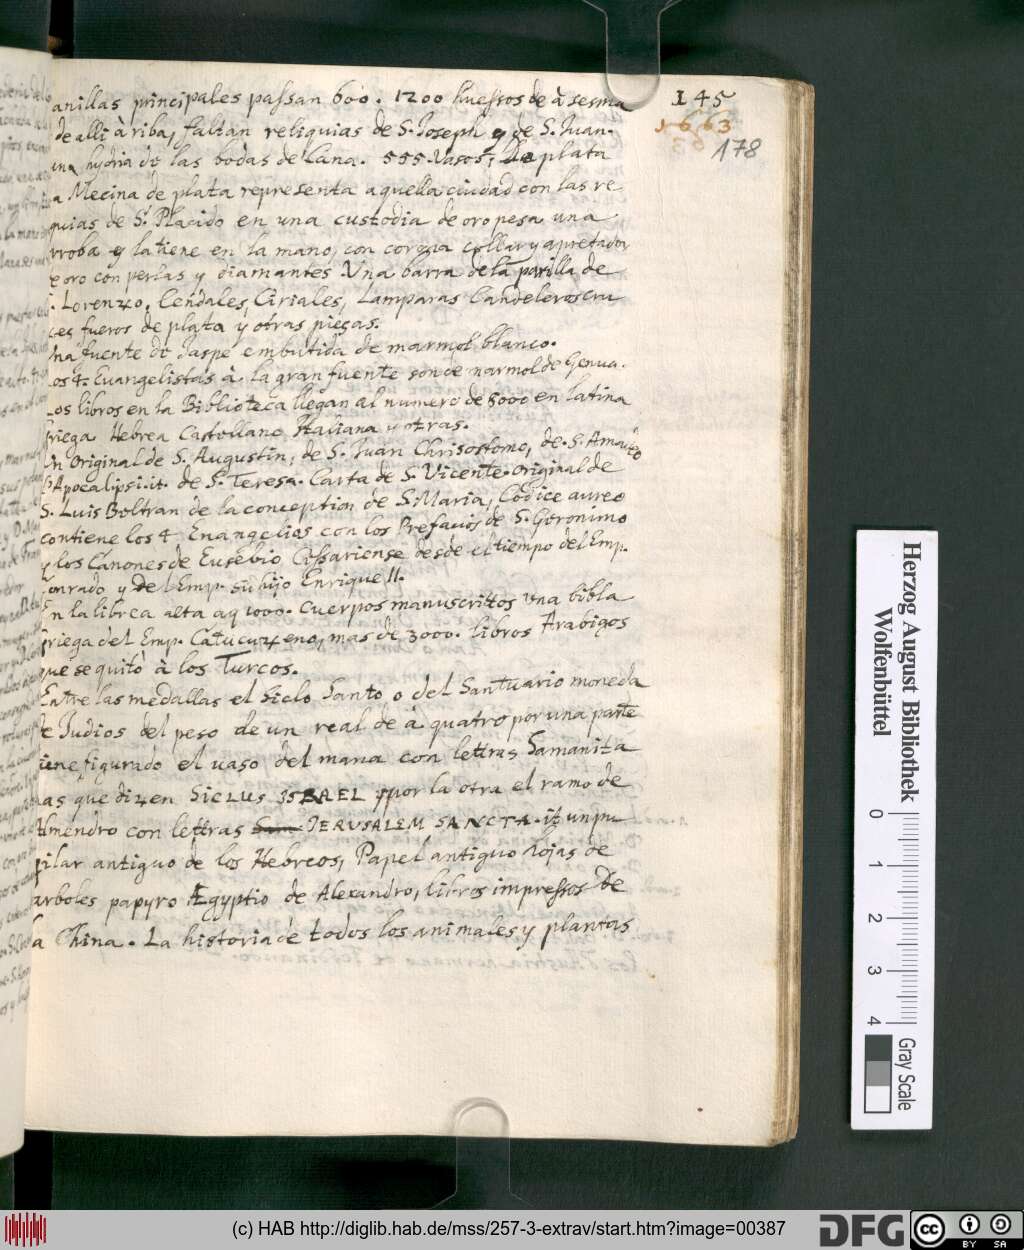 145
1663
178
anillas principales passan 600. 1200 huessos de à sesma
de alli à riba, faltan reliquias de S. Joseph y de S. Juan.
una hydria de las bodas de Cana. 555 Vasos, de plata
a Mecina de plata representa aquella ciudad con las re
quias de S. Placido en una custodia de oro pesa una
rroba y la tiene en la mano, con corona collar y apretador
e oro con perlas y diamantes Una barra de la parilla de
. Lorenzo. Cendales, Ciriales, Lamparas Candeleros cru
ces fueros de plata y otras piesas.
na fuente de Jaspe embutida de marmol blanco.
Los 4. Evangelistas à la gran fuente son de marmol de Genua.
Los libros en la Biblioteca llegan al numero de 8000 en latina
griega Hebrea Castellano Italiana y otras.
Un Original de S. Augustin, de S. Juan Chrisostomo, de S. Amado
Apocalipsi. it. de S. Teresa. Carta de S. Vicente. original de
S. Luis Beltran de la conception de S. Maria, Codice aureo
contiene los 4 Enangelios con los Prefacios de S. Geronimo
y los Canones de Eusebio Cissariense desde el tiempo del Emp.
onrado y del Emp. su hijo Enrique II.
En la librea alta aq 1000. cuerpos manuscrittos una bibla
griega del Emp. Catucuzeno, mas de 3000. libros Arabigos
que se quitò à los Turcos.
Entre las medallas el Siclo Santo o del Santuario moneda
de Judios del peso de un real de à quatro por una parte
iene figurado el vaso del mana con lettras Samanita
nas que dizen SICLUS ISRAEL y por la otra el ramo de
Almendro con lettras JERUSALEM SANCTA. it un pu
pilar antiguo de los Hebreos, Papel antiguo hojas de
arboles papyro Ægyptio de Alexandro, libros impressos De
la China. La historia de todos los animales y plantas
Herzog August Bibliothek
Wolfenbüttel
0 1 2 3 4
Gray Scale
(c) HAB http://diglib.hab.de/mss/257-3-extrav/start.htm?image=00387
DFG
cc BY SA